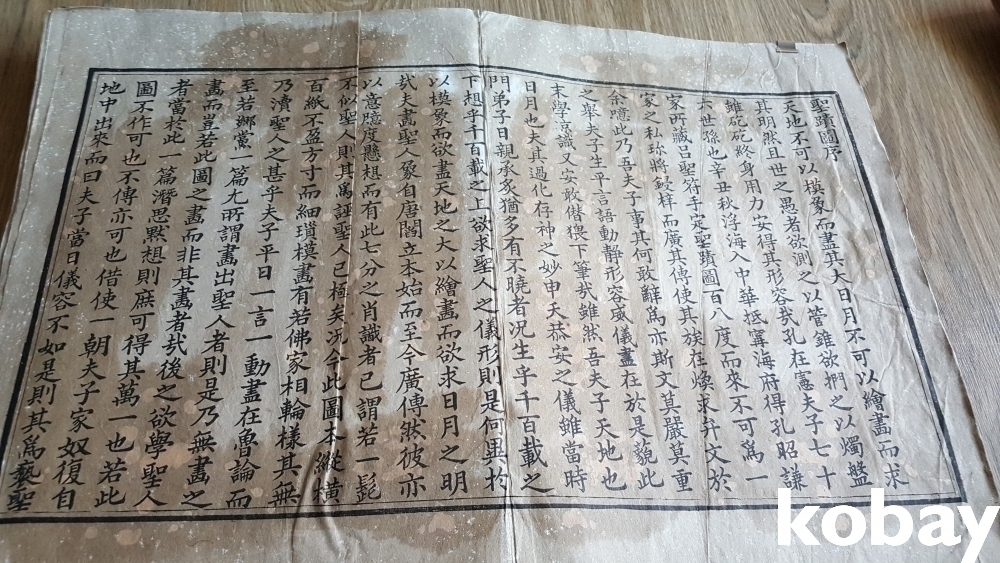 聖蹟圖序
天地不可以模象而盡其大日月不可以繪畫而求
其明然且世之愚者欲測之以管錐欲捫之以燭盤
雖矻矻終身用力安得其形容哉我孔在憲夫子七十
六世孫也辛丑秋浮海入中華抵寧海府得孔昭謙
家所藏呂聖符手定聖蹟圖百八度而來不可爲一
家之私珎將鋟梓而廣其傳使其族在煥求弁文於
余噫此乃吾夫子事其何敢辭焉亦斯文莫嚴莫重
之擧夫子生平言語動靜形容威儀盡在於是藐此
末學謭識又安敢僣猥下筆哉雖然吾夫子天地也
日月也夫其過化存神之妙申夭恭安之儀雖當時
門弟子日親承炙猶多有不曉者况生乎千百載之
下想乎千百載之上欲求聖人之儀形則是何異於
以模象而欲盡天地之大以繪畫而欲求日月之明
哉夫畫聖人象自唐閻立本始而至今廣傳然彼亦
以意臆度懸想而有此七分之肖識者已謂若一髭
不似聖人則其爲誣聖人已極矣况今此圖本縱橫
百紙不盈方寸而細瑣模畫有若佛家相輪樣其無
乃瀆聖人之甚乎夫子平日一言一動盡在魯論而
至若鄕黨一篇尤所謂畫出聖人者則是乃無畫之
畫而豈若此圖之畫而非其畫者哉後之欲學聖人
者當於此一篇潛思黙想則庶可得其萬一也若此
圖不作可也不傳亦可也借使一朝夫子家奴復自
地中出來而曰夫子當日儀容不如是則其爲褻聖
kobay